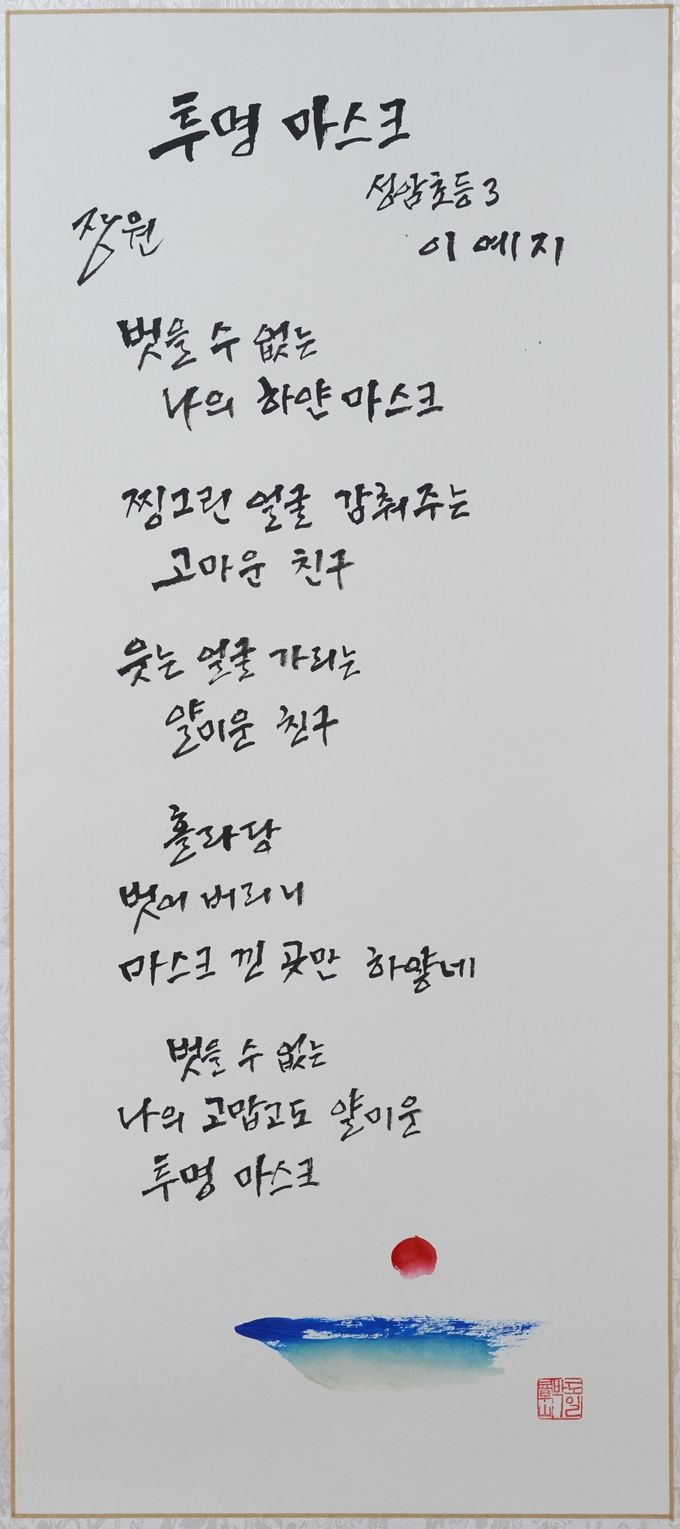 투명 마스크
성암초등 3
장원
이예지
벗을 수 없는
나의 하얀 마스크
찡그린 얼굴 감춰주는
고마운 친구
웃는 얼굴 가리는
얄미운 친구
홀라당
벗어 버리니
마스크 낀 곳만 하얗네
벗을 수 없는
나의 고맙고도 얄미운
투명 마스크